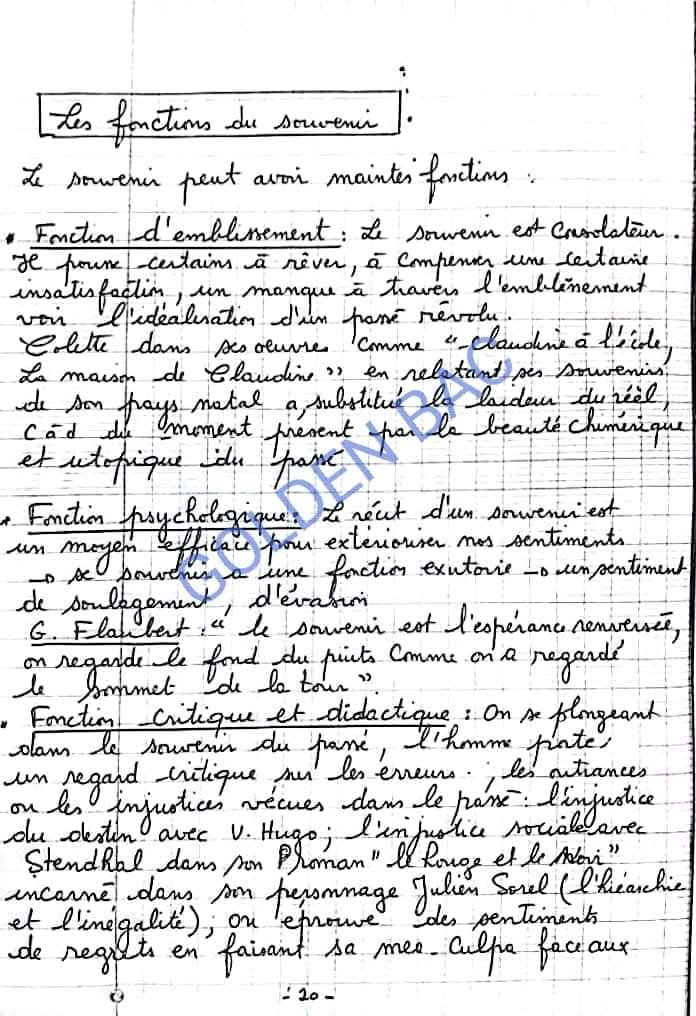 Les fonctions du souvenir :
Le souvenir peut avoir maintes fonctions :
• Fonction d'emblissement : Le souvenir est Consolateur.
Il pousse certains à rêver, à compenser une certaine
insatisfaction, un manque à travers l'emblênement
voir l'idéalisation d'un passé révolu.
Colette dans ses oeuvres comme "Claudine à l'école,
La maison de Claudine" en relatant ses souvenirs
de son pays natal a substitué la laideur du réèl,
Càd du moment présent par la beauté chimérique
et utopique du passé
• Fonction psychologique : Le récit d'un souvenir est
un moyen efficace pour extérioriser nos sentiments
→ se souvenir a une fonction exutoire → un sentiment
de soulagement, d'évasion
G. Flaubert : "le souvenir est l'espérance renversée,
on regarde le fond du puits Comme on a regardé
le sommet de la tour"
• Fonction critique et didactique : On se plongeant
dans le souvenir du passé, l'homme porte
un regard critique sur les erreurs, les outrances
ou les injustices vécues dans le passé : l'injustice
du destin avec V. Hugo ; l'injustice sociale avec
Stendhal dans son roman "le Rouge et le Noir"
incarné dans son personnage Julien Sorel (l'hiéarchie
et l'inégalité) ; ou éprouve des sentiments
de regrets en faisant sa mea-Culpa face aux
- 20 -
GOLDEN BAC